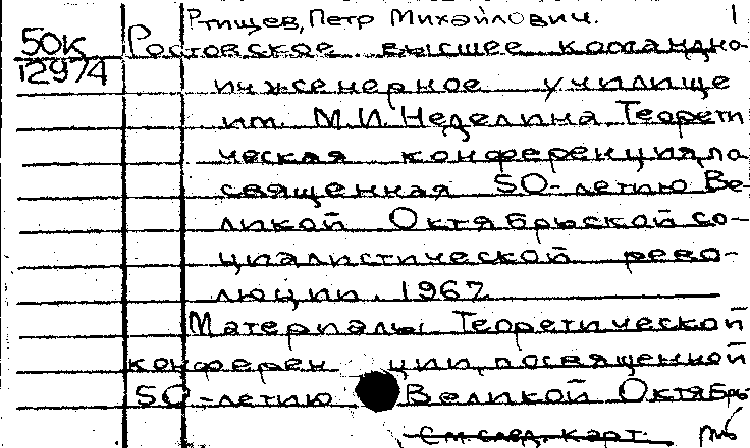 Ртищев, Петр Михайлович. 1
50к Ростовское высшее командно
12974 инженерное училище
им. М.И. Неделина Теорети
ческая конференция по
священная 50-летию Ве-
ликой Октябрьской со-
циалистической рево-
люции. 1967.
Материалы Теоретической
конферен ции, посвященной
50-летию Великой Октябрь
См. след. карт.